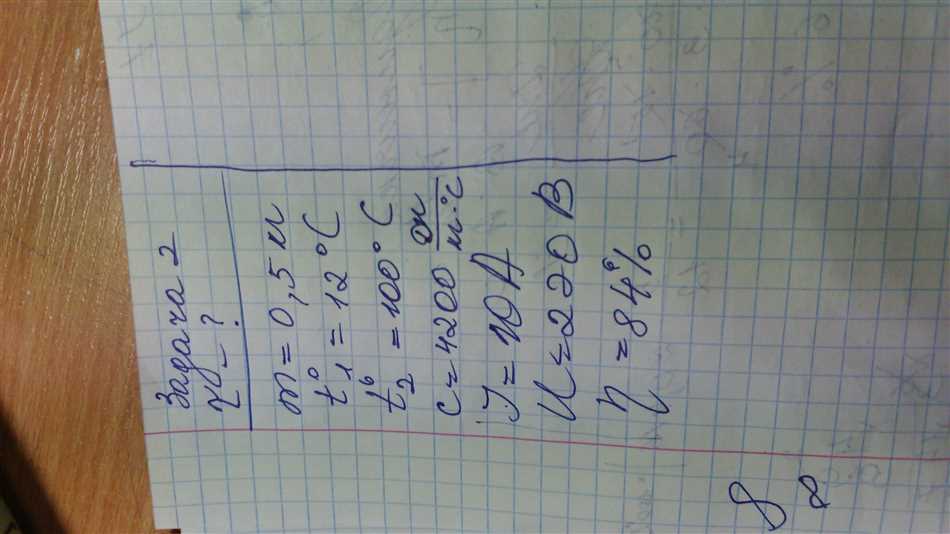 Задача 2
τ₀ - ?
m = 0,5 кг
t°₁ = 12 °C
t°₂ = 100 °C
c = 4200 Дж/кг·°C
J = 10 A
U = 220 В
η = 84%
8
8